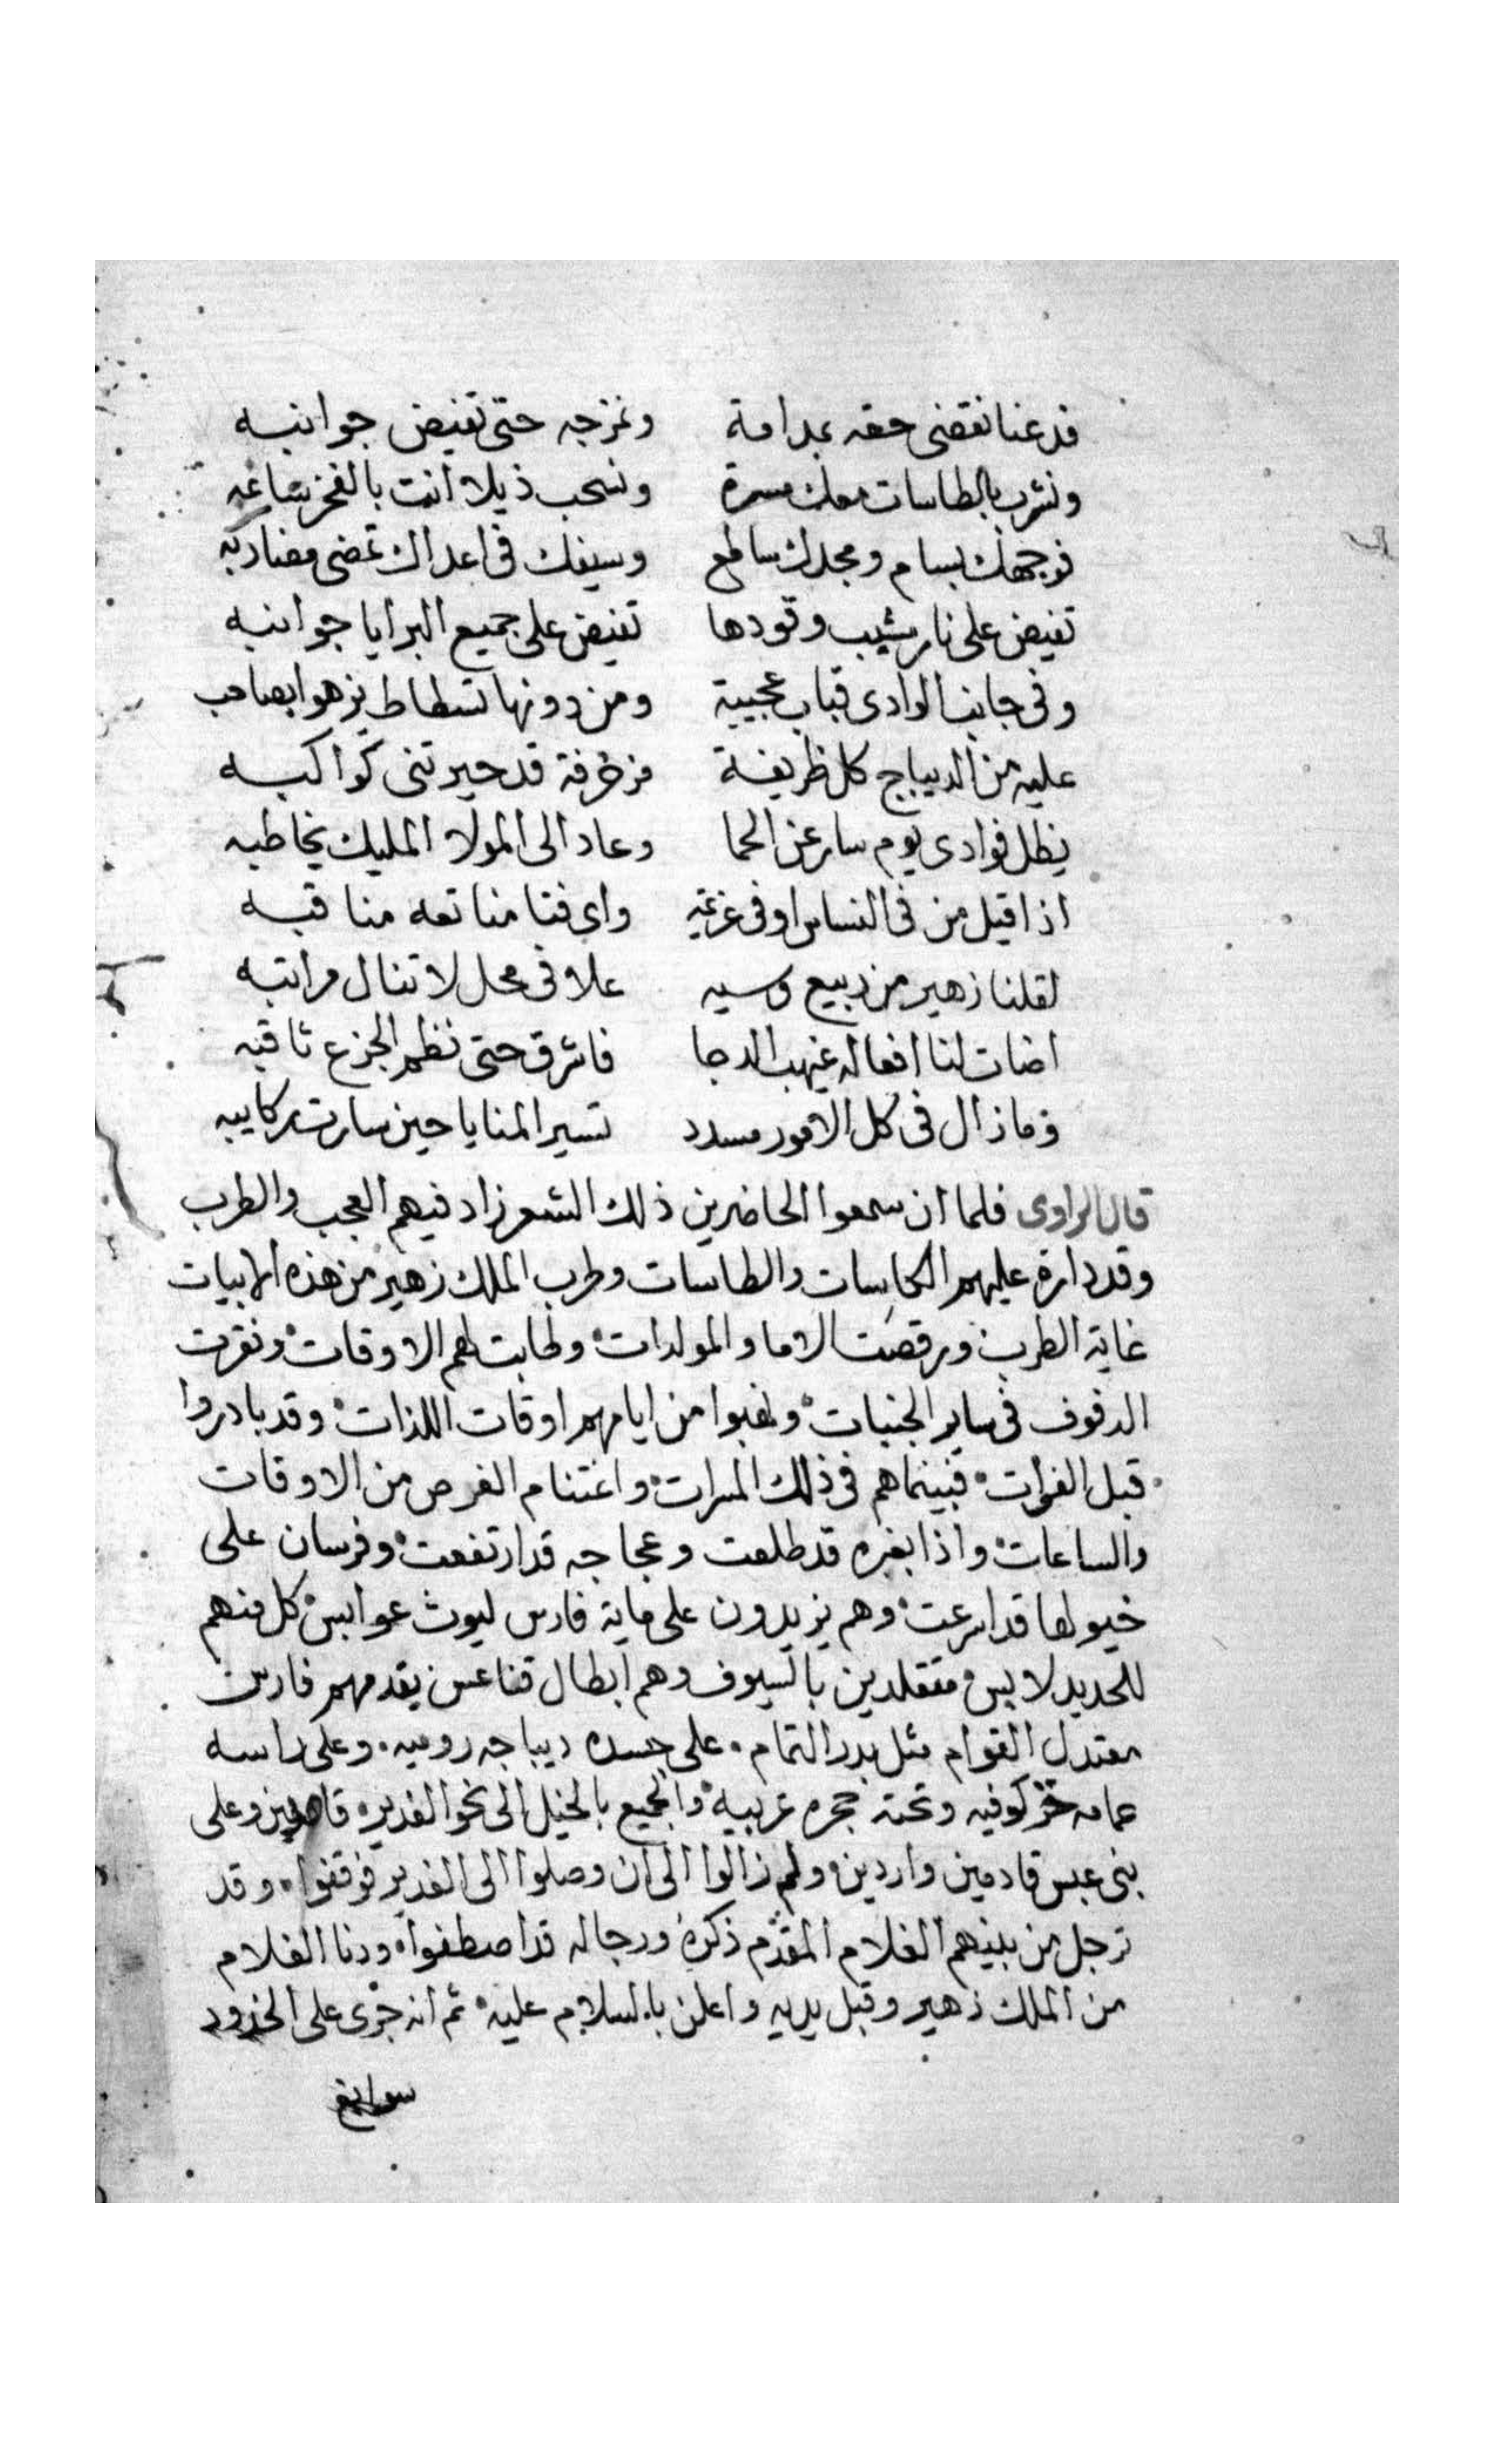 فدعنا نقضى حقه بمدامة ونمزجه حتى تفيض جوانبه
ونشرب بالطاسات معك مسرة ونسحب ذيلا انت بالفخر
فوجهك بسام ومجدك ساطع وسيفك فى اعداك تمضى مضاربه
تفيض على نار يشيب وقودها تفيض على جميع البرايا جوانبه
وفى جانب الوادى قباب عجيبة ومن دونها تسطاط يزهوا بصاحب
عليه من الديباج كل ظريفة مزخرفة قد حيرتنى كواكبه
يظل فوادى يوم سار عن الحما وعاد الى المولا المليك يخاطبه
اذا قيل من فى الناس اوفى عزيمة واى فتا منا تعد مناقبه
لقلنا زهير من ربيع علا فى محل لا تنال مراتبه
اضات لنا افعاله غيهب الدجا فاشرق حتى نظم الجزع ثاقبه
وما زال فى كل الامور مسدد تسير المنايا حين سارت ركايبه
قال الراوى فلما ان سمعوا الحاضرين ذلك الشعر زاد فيهم العجب والطرب
وقد دارة عليهم الكاسات والطاسات وطرب الملك زهير من هذه الابيات
غاية الطرب ورقصت الاما والمولدات وطابت لهم الاوقات ونقرت
الدفوف فى ساير الجنبات ونهبوا من ايامهم اوقات اللذات وقد بادروا
قبل الفوات فبينما هم فى ذلك المسرات واغتنام الفرص من الاوقات
والساعات واذا بغبره قد طلعت وعجاجه قد ارتفعت وفرسان على
خيولها قد اسرعت وهم يزيدون على ماية فارس ليوث عوابس كل منهم
للحديد لابس متقلدين بالسيوف وهم ابطال قناعس يقدمهم فارس
معتدل القوام مثل بدر التمام على جسده ديباجه روميه وعلى راسه
عمامه خز كوفيه وتحته حجره عربيه والجميع بالخيل الى نحو الغدير قاصدين وعلى
بنى عبس قادمين واردين ولم زالوا الى ان وصلوا الى الغدير فوقفوا وقد
ترجل من بينهم الغلام المقدم ذكره ورجاله قد اصطفوا ودنا الغلام
من الملك زهير وقبل يديه واعلن بالسلام عليه ثم انه جرى على الخدود
سوابق